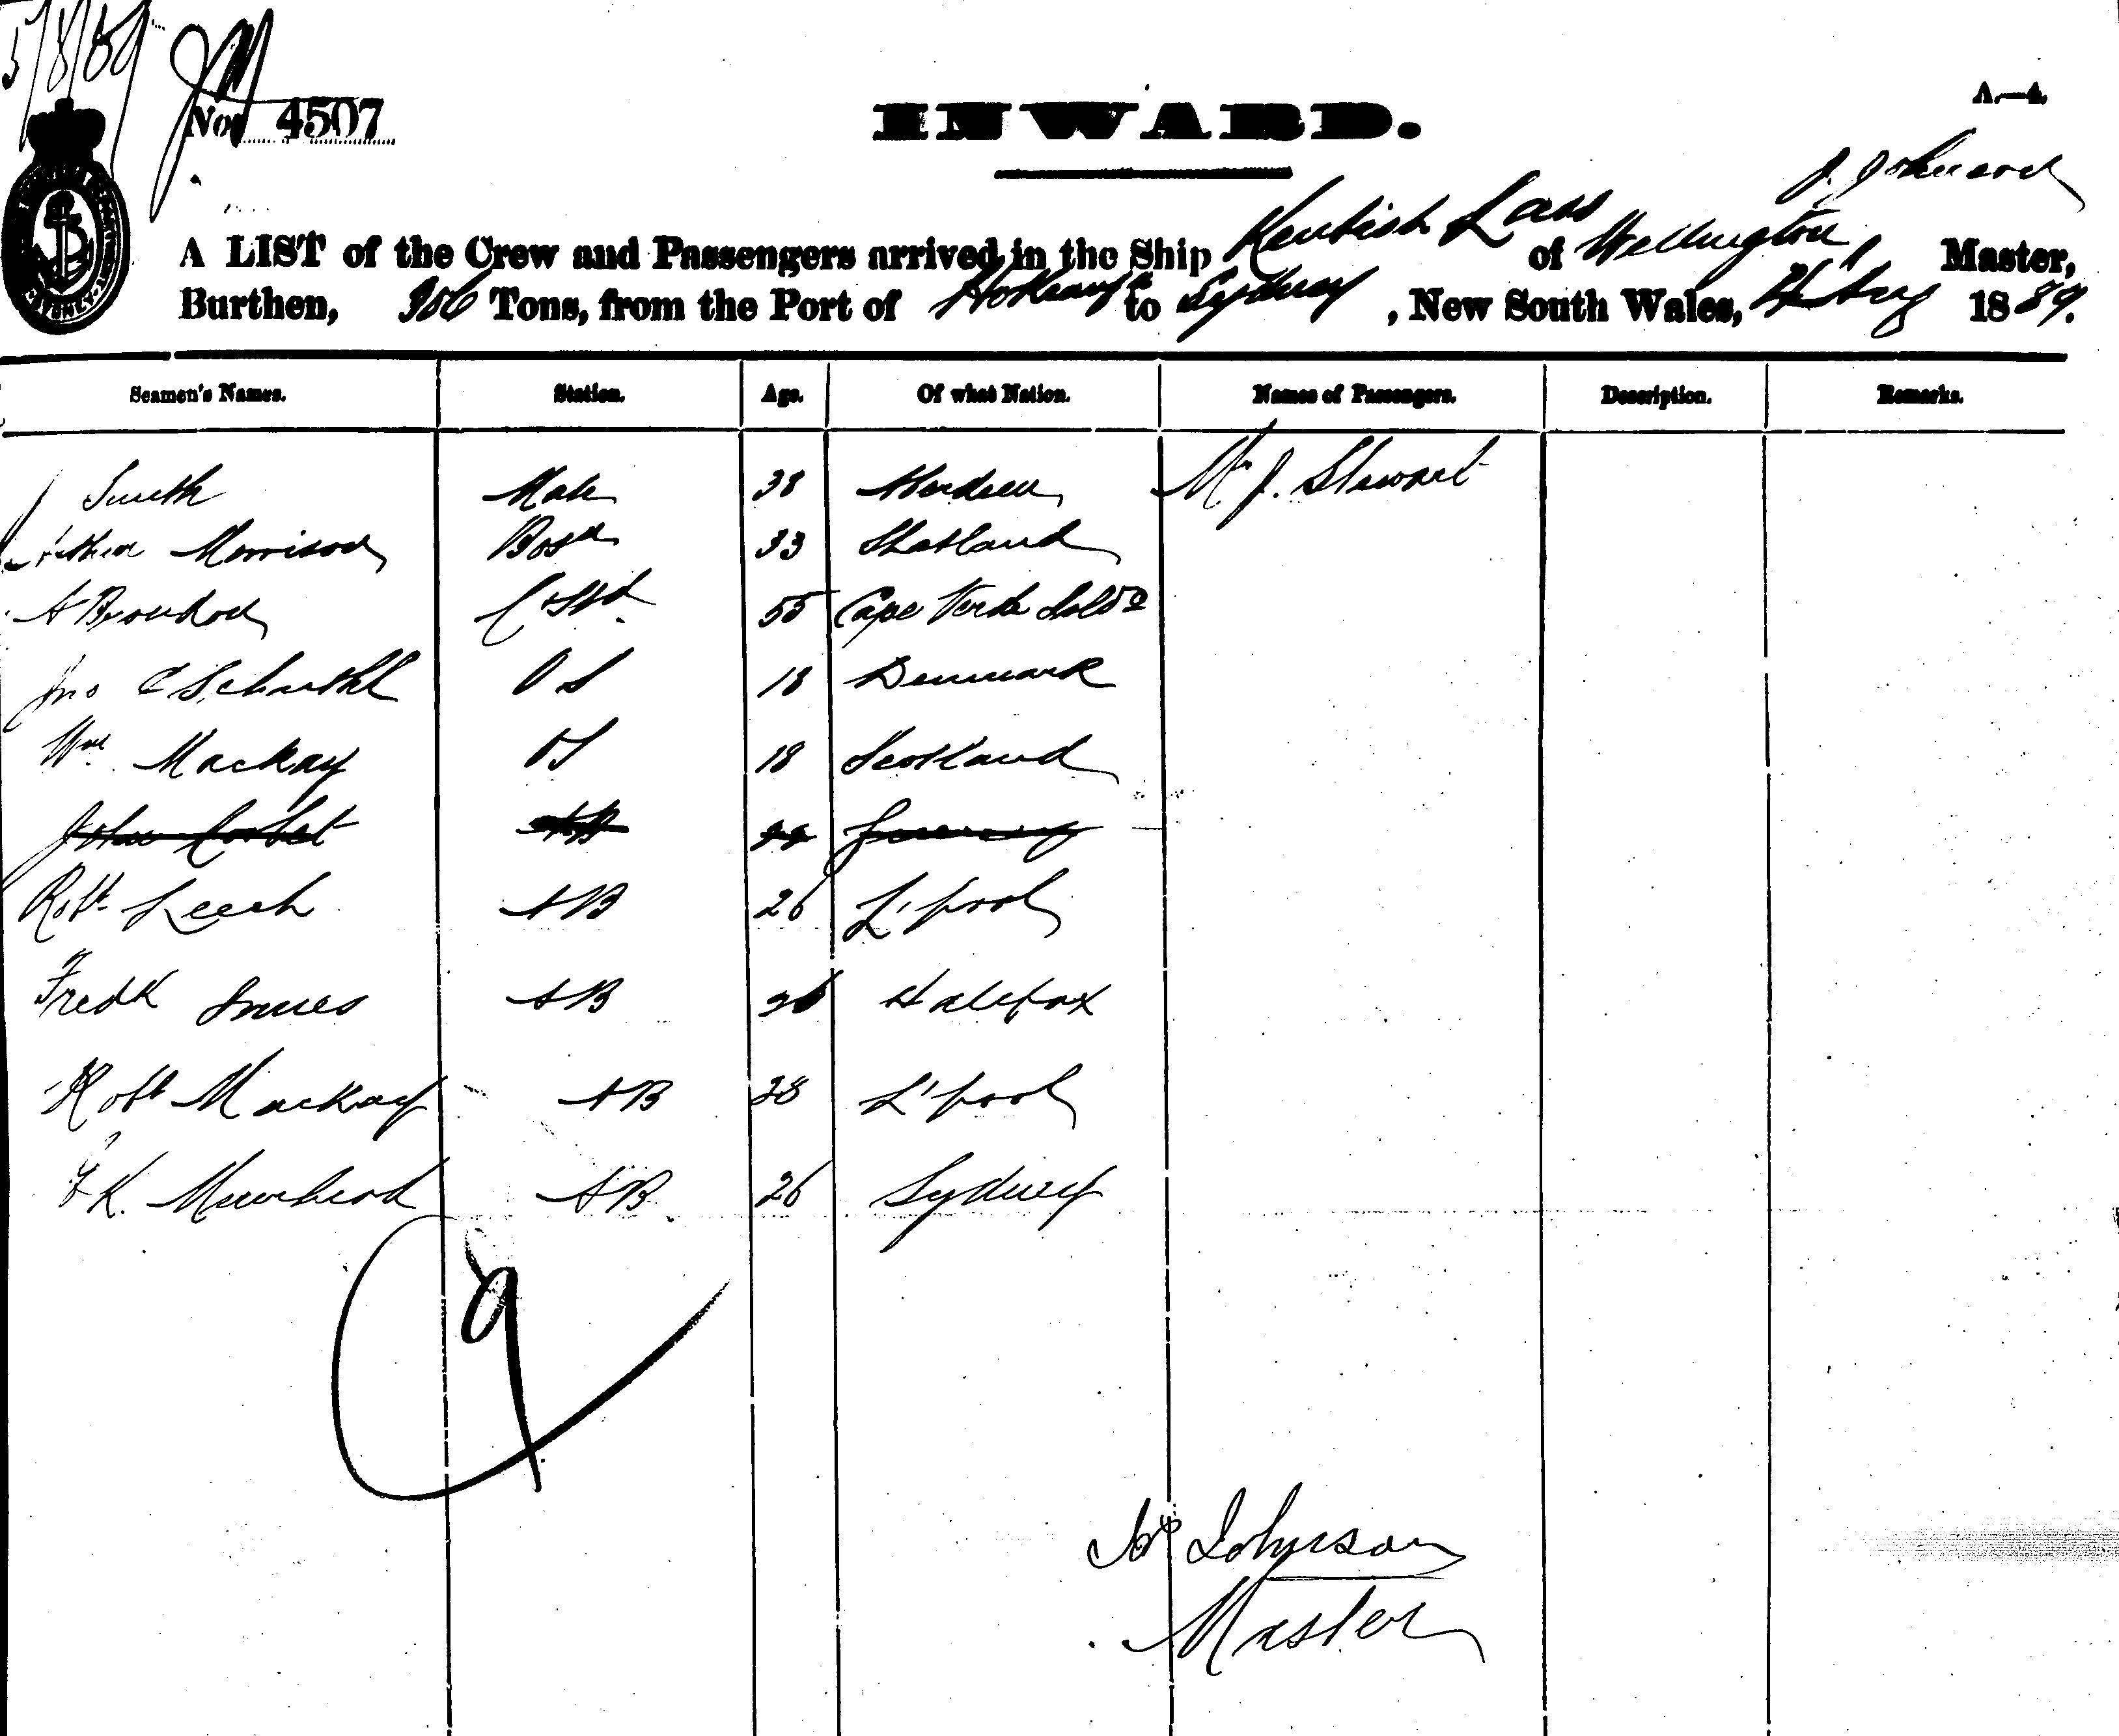 5/8/89
No. 4507
INWARD.
A.—4.
J. Johnson
A LIST of the Crew and Passengers arrived in the Ship Kentish Lass of Wellington, Master,
Burthen, Tons, from the Port of to Sydney, New South Wales, 4 Aug 1889.
Seamen's Names. Station. Age. Of what Nation. Names of Passengers. Description. Remarks.
J Smith Mate 38 Aberdeen Mr J. Stewart
Arthur Morrison Bosn 33 Shetland
A C Std. 55 Cape Verde Islds
Jno C Denmark OS 18
Wm Mackay OS 18 Scotland
John Corbet AB
Robt Leech AB 26 L'pool
Fredk Innes AB 26 Halifax
Robt Mackay AB 28 L'pool
F K. Muirhead AB 26 Sydney
9
Jno Johnson
Master